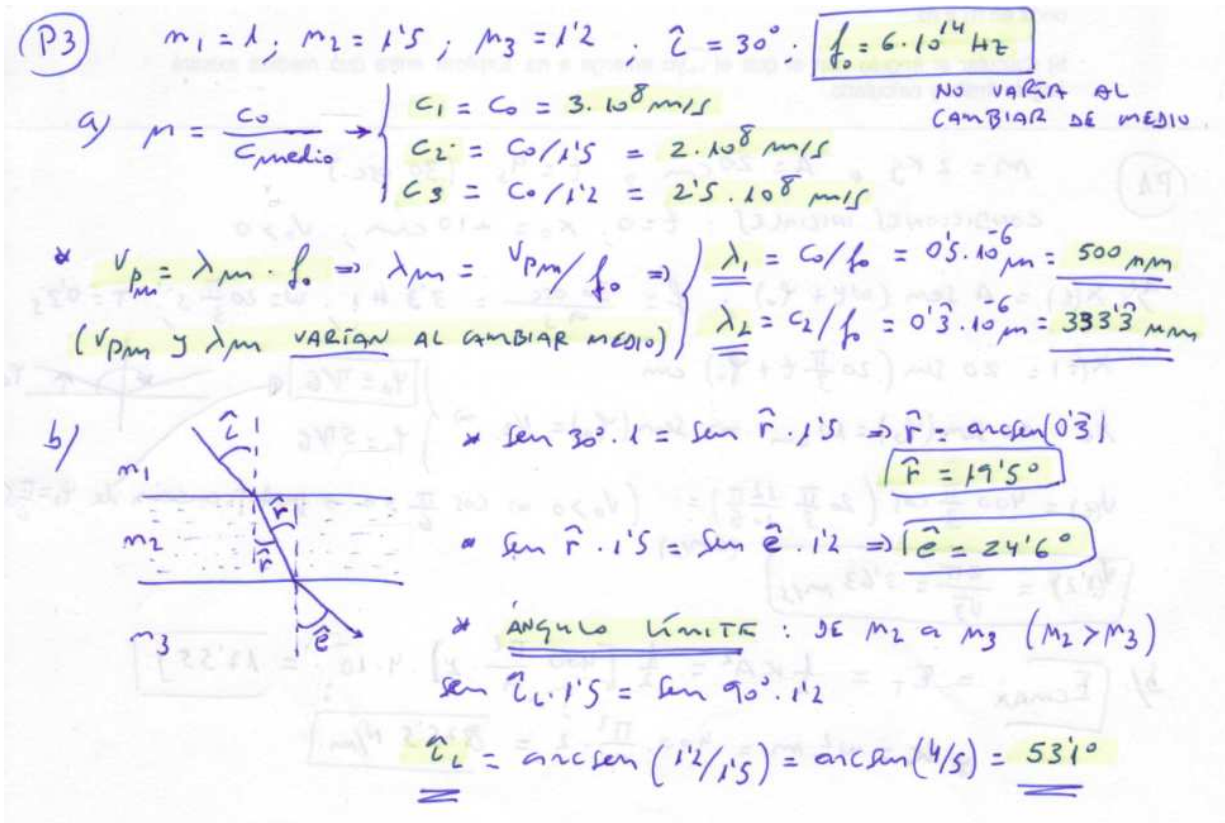 P3) n₁ = 1 ; n₂ = 1'5 ; n₃ = 1'2 . î = 30° . f₀ = 6·10¹⁴ Hz
NO VARÍA AL
CAMBIAR DE MEDIO.
a) n = c₀ / c medio → { c₁ = c₀ = 3·10⁸ m/s
c₂ = c₀/1'5 = 2·10⁸ m/s
c₃ = c₀/1'2 = 2'5·10⁸ m/s
* vₚₘ = λₘ · f₀ ⇒ λₘ = vₚₘ/f₀ ⇒ { λ₁ = c₀/f₀ = 0'5·10⁻⁶ m = 500 nm
(vₚₘ y λₘ VARÍAN AL CAMBIAR MEDIO) λ₂ = c₂/f₀ = 0'3̂·10⁻⁶ m = 333'3̂ nm
b) î
n₁
r̂
n₂
r̂
n₃
ê
* sen 30°·1 = sen r̂·1'5 ⇒ r̂ = arcsen(0'3̂)
r̂ = 19'5°
* sen r̂·1'5 = sen ê·1'2 ⇒ ê = 24'6°
* ÁNGULO LÍMITE : DE n₂ a n₃ (n₂ > n₃)
sen î_L·1'5 = sen 90°·1'2
î_L = arcsen (1'2/1'5) = arcsen(4/5) = 53'1°